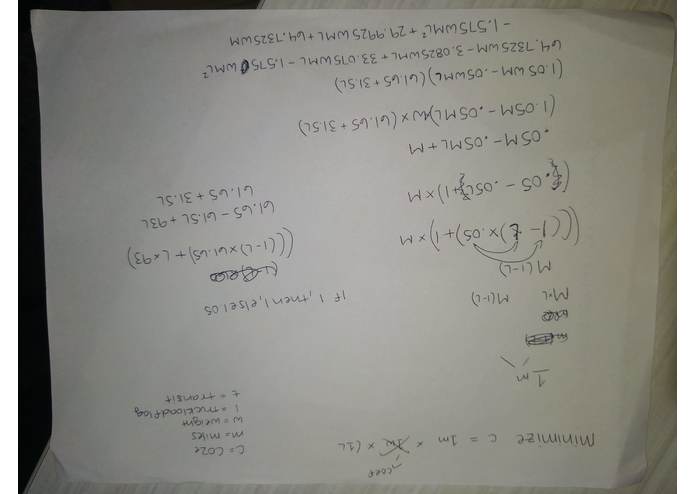 coeff
Minimize C = 1m × 1w × (1L
C = CO2e
m = miles
w = weight
l = truckloadflag
t = transit
1 m
M·L M(1-L)
M(1-L)
If 1, then 1, else 1.05
(((1-L)×.05)+1)×M
(((1-L)×61.65)+L×93)
(.05 - .05L+1)×M
61.65 - 61.5L + 93L
61.65 + 31.5L
.05M - .05ML + M
(1.05M - .05ML)W×(61.65 + 31.5L)
(1.05WM - .05WML)(61.65 + 31.5L)
64.7325WM - 3.0825WML + 33.075WML - 1.575WML²
-1.575WML² + 29.9925WML + 64.7325WM